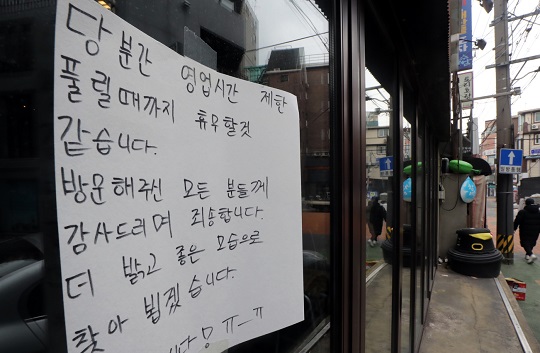 당분간 영업시간 제한
풀릴때까지 휴무할것
같습니다.
방문해주신 모든 분들께
감사드리며 죄송합니다.
더 밝고 좋은 모습으로
찾아 뵙겠습니다.
ㅠ_ㅠ